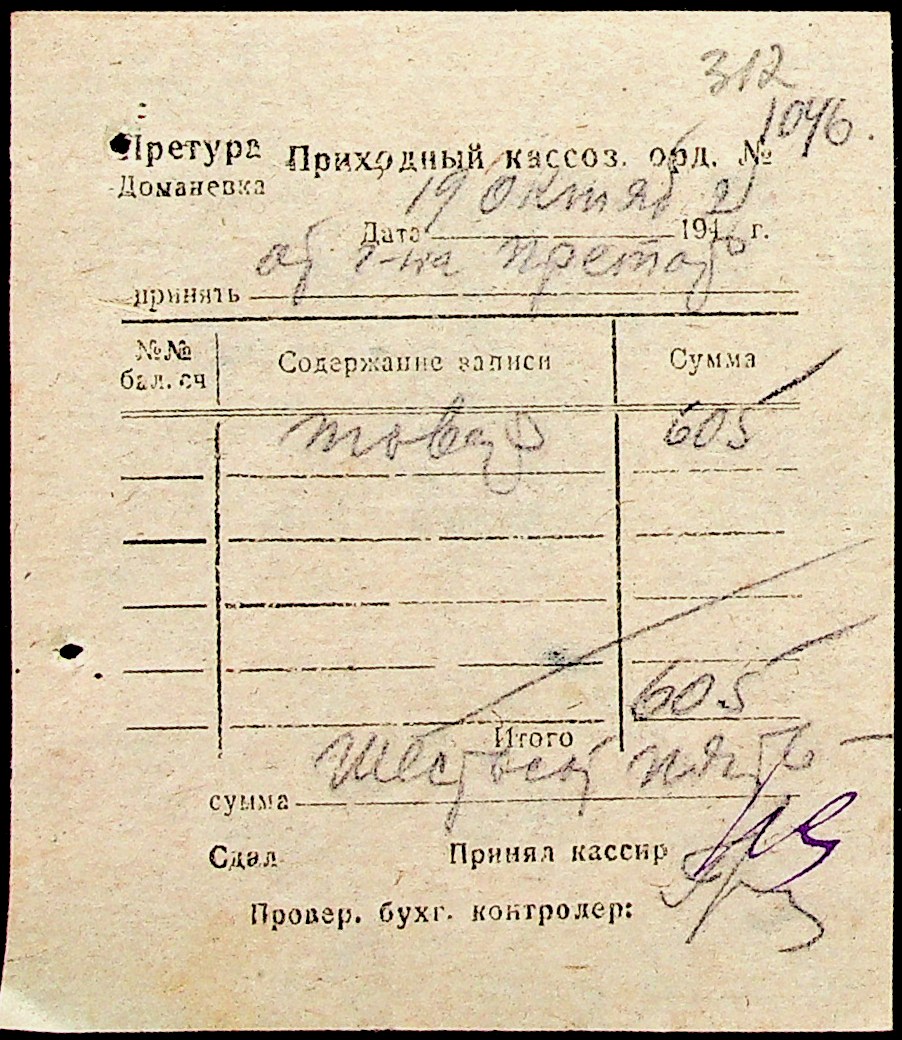 312
1046.
Претура Приходный кассоз. орд. №
Доманевка
19 Октяб
Дата 194 г.
от г-на претора
принять
№№ бал. сч Содержание записи Сумма
товар 605
605
Итого
шестьсот пять
сумма
Сдал Принял кассир
Провер. бухг. контролер: